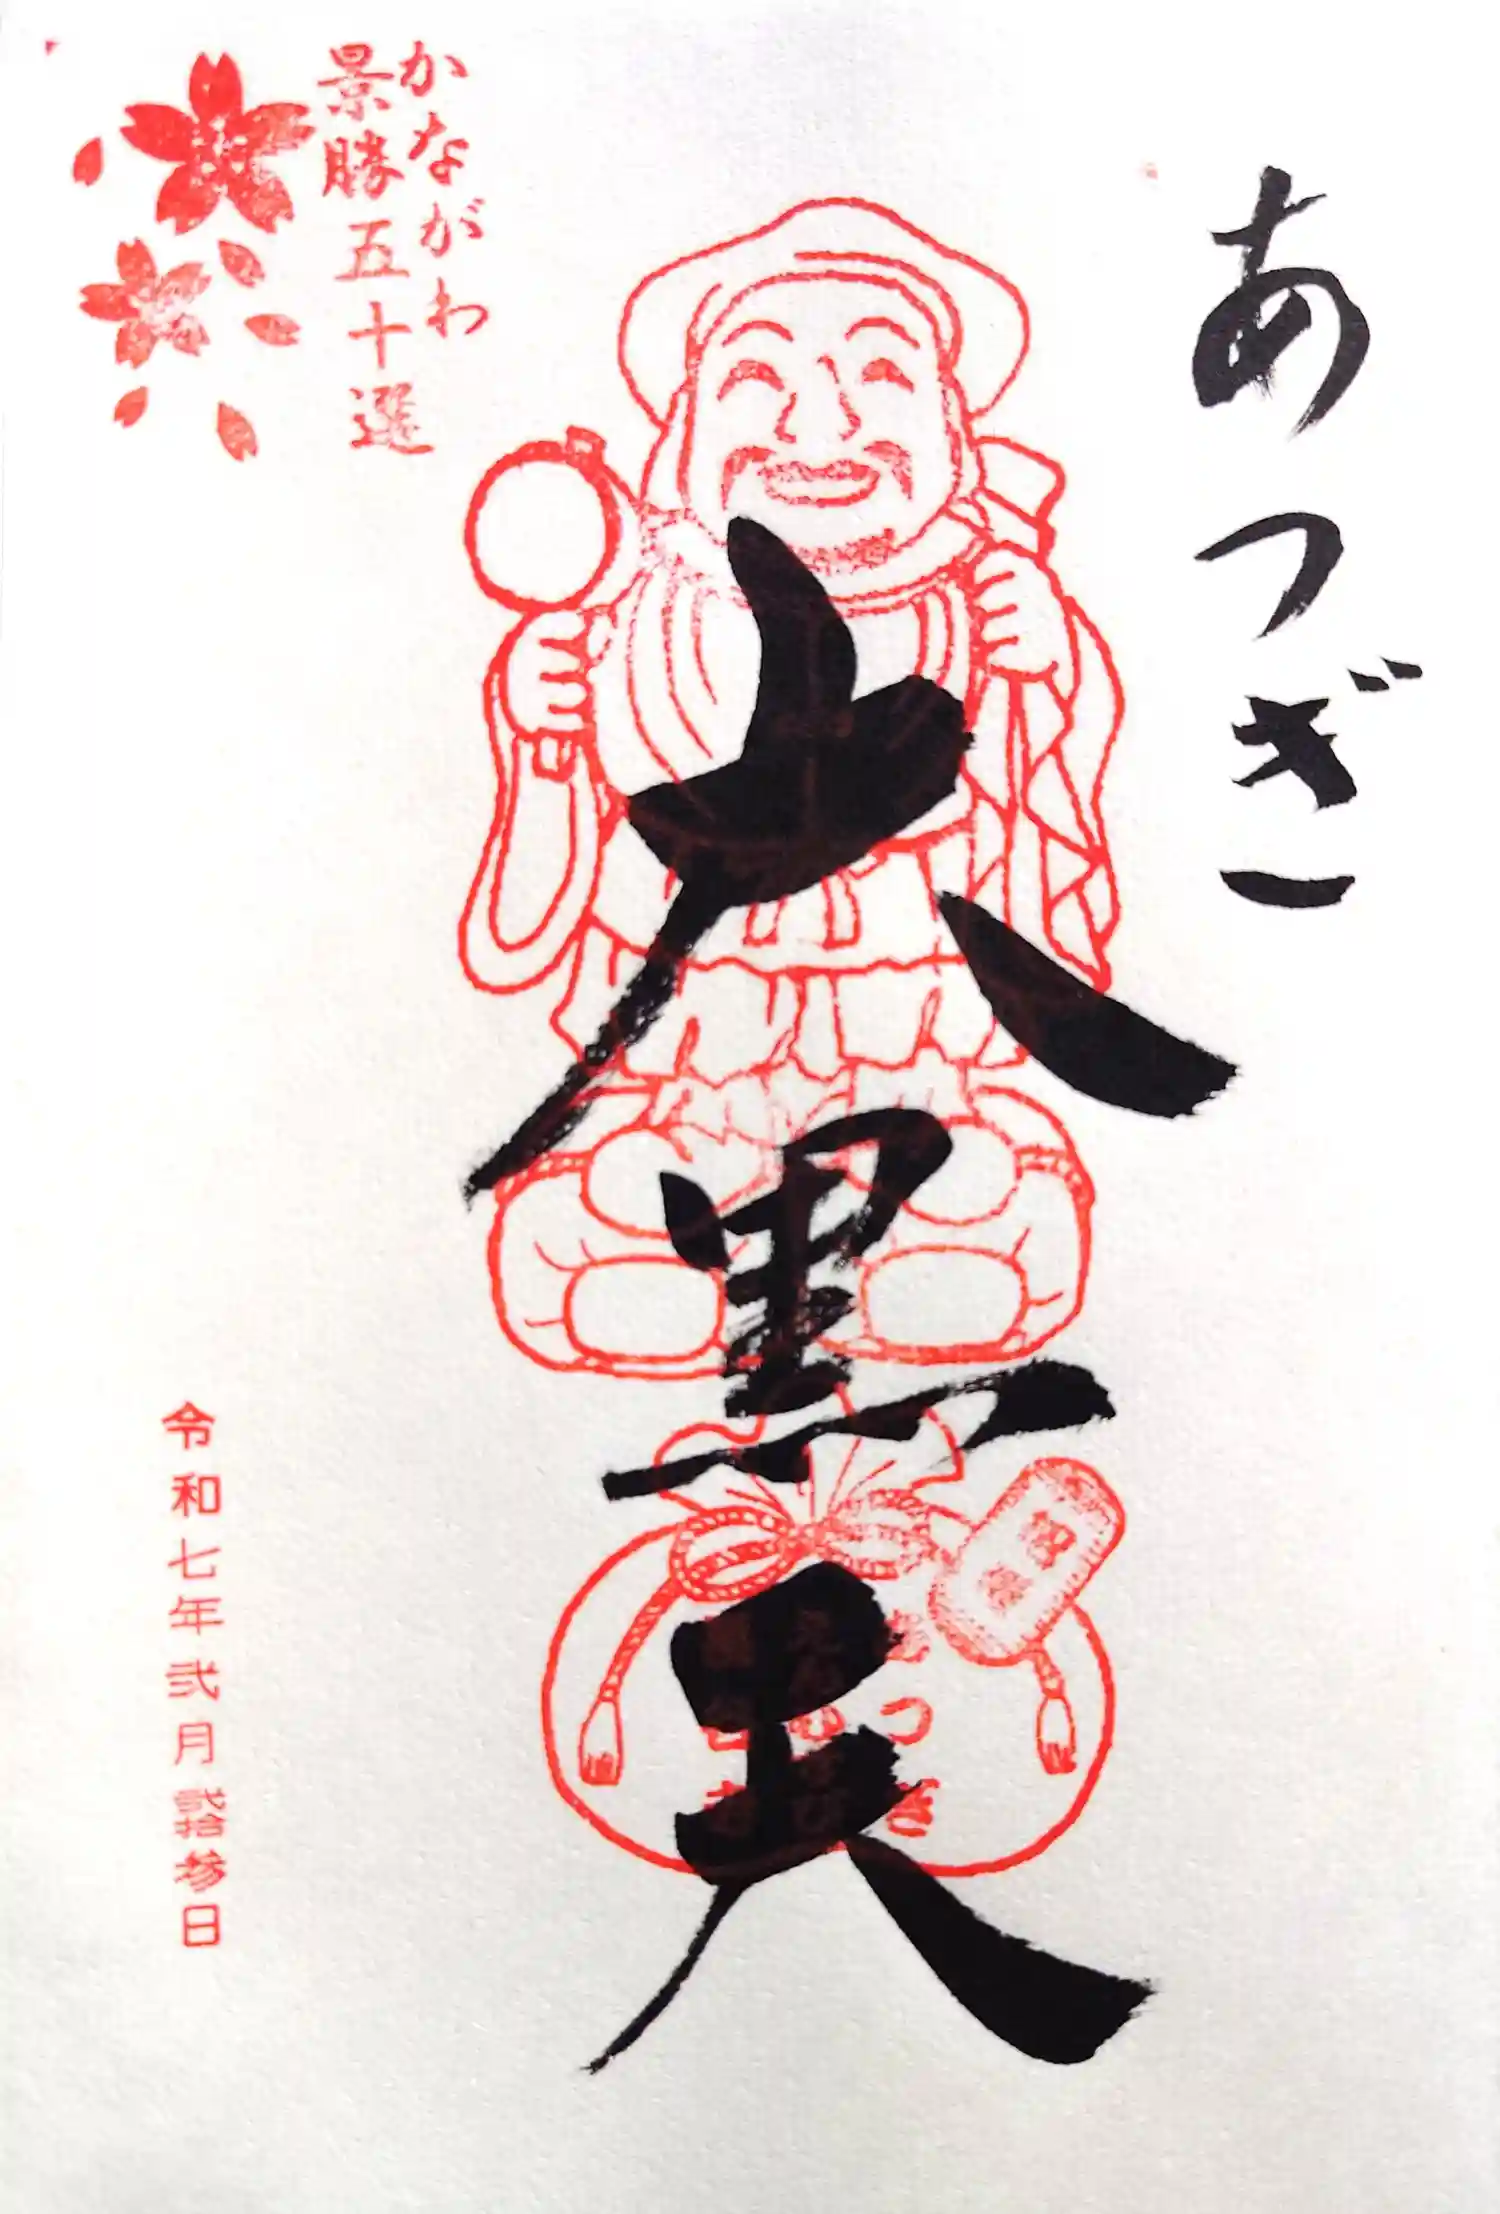 あつぎ一
大黒天
かながわ
景勝五十選
令和七年弐月弐拾参日